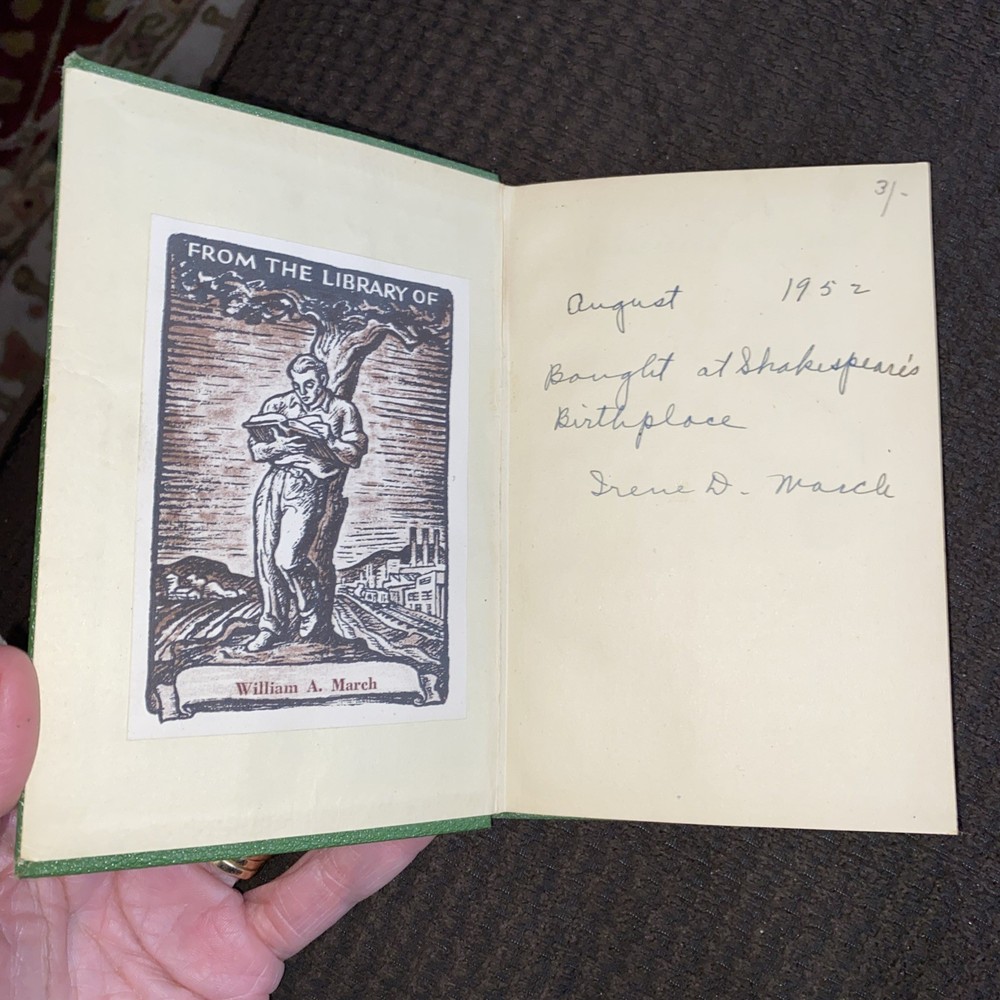 FROM THE LIBRARY OF
William A. March
3/-
August 1952
Bought at Shakespeare's
Birthplace
Irene D. March